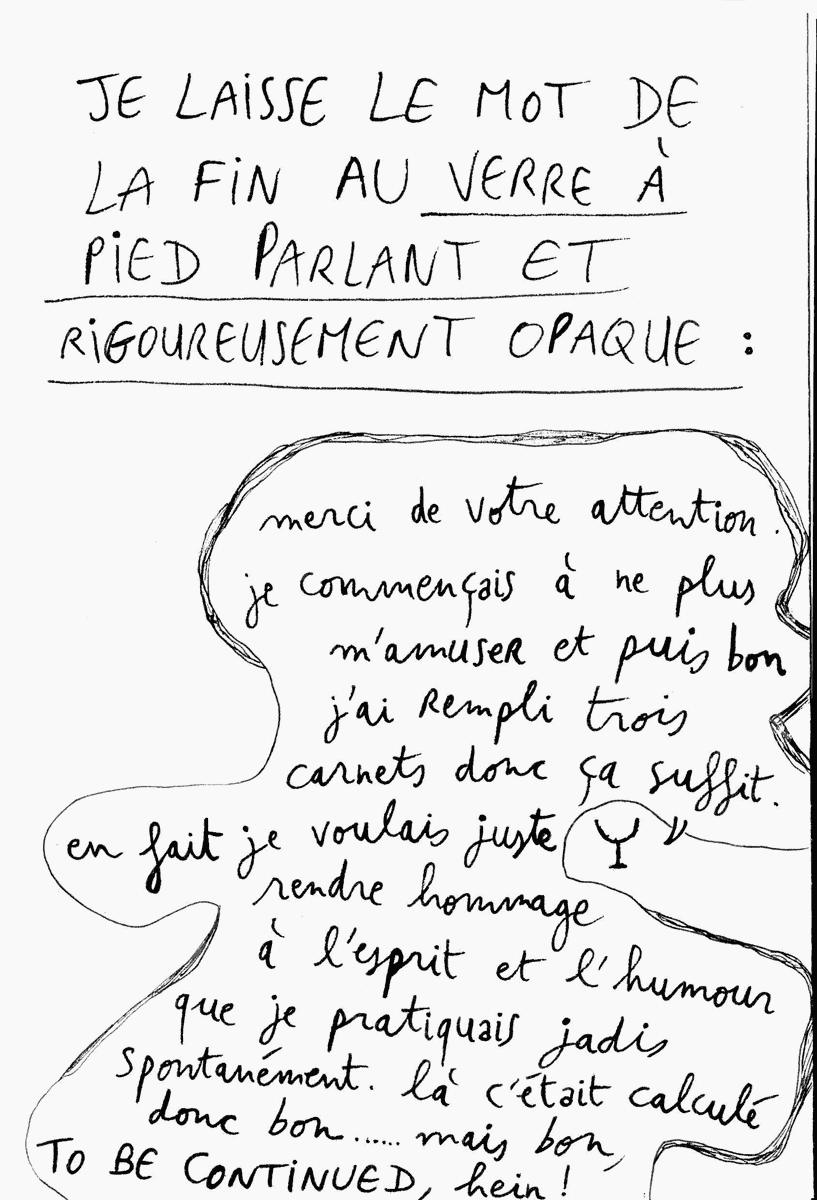 JE LAISSE LE MOT DE
LA FIN AU VERRE À
PIED PARLANT ET
RIGOUREUSEMENT OPAQUE :
merci de votre attention.
je commençais à ne plus
m'amuser et puis bon
j'ai rempli trois
carnets donc ça suffit.
en fait je voulais juste
rendre hommage
à l'esprit et l'humour
que je pratiquais jadis
spontanément. là c'était calculé
donc bon...... mais bon,
TO BE CONTINUED, hein !